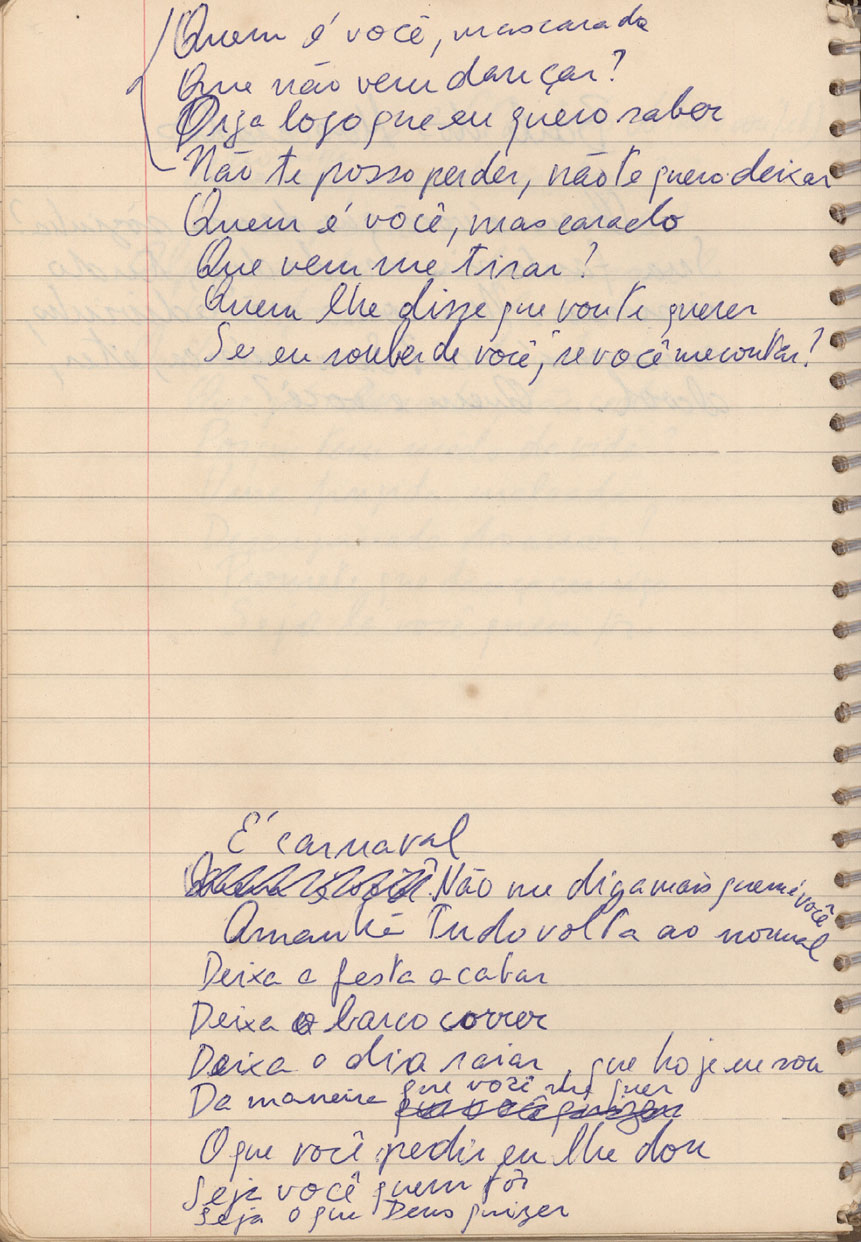 Quem é você, mascarada
Que não vem dançar?
Diga logo que eu quero saber
Não te posso perder, não te quero deixar
Quem é você, mascarado
Que vem me tirar?
Quem lhe disse que vou te querer
Se eu souber de você, se você me contar?
É carnaval
Não me diga mais quem é você
Amanhã Tudo volta ao normal
Deixa a festa acabar
Deixa o barco correr
Deixa o dia raiar, que hoje eu sou
Da maneira que você me quer
O que você pedir eu lhe dou
Seja você quem fôr
Seja o que Deus quizer